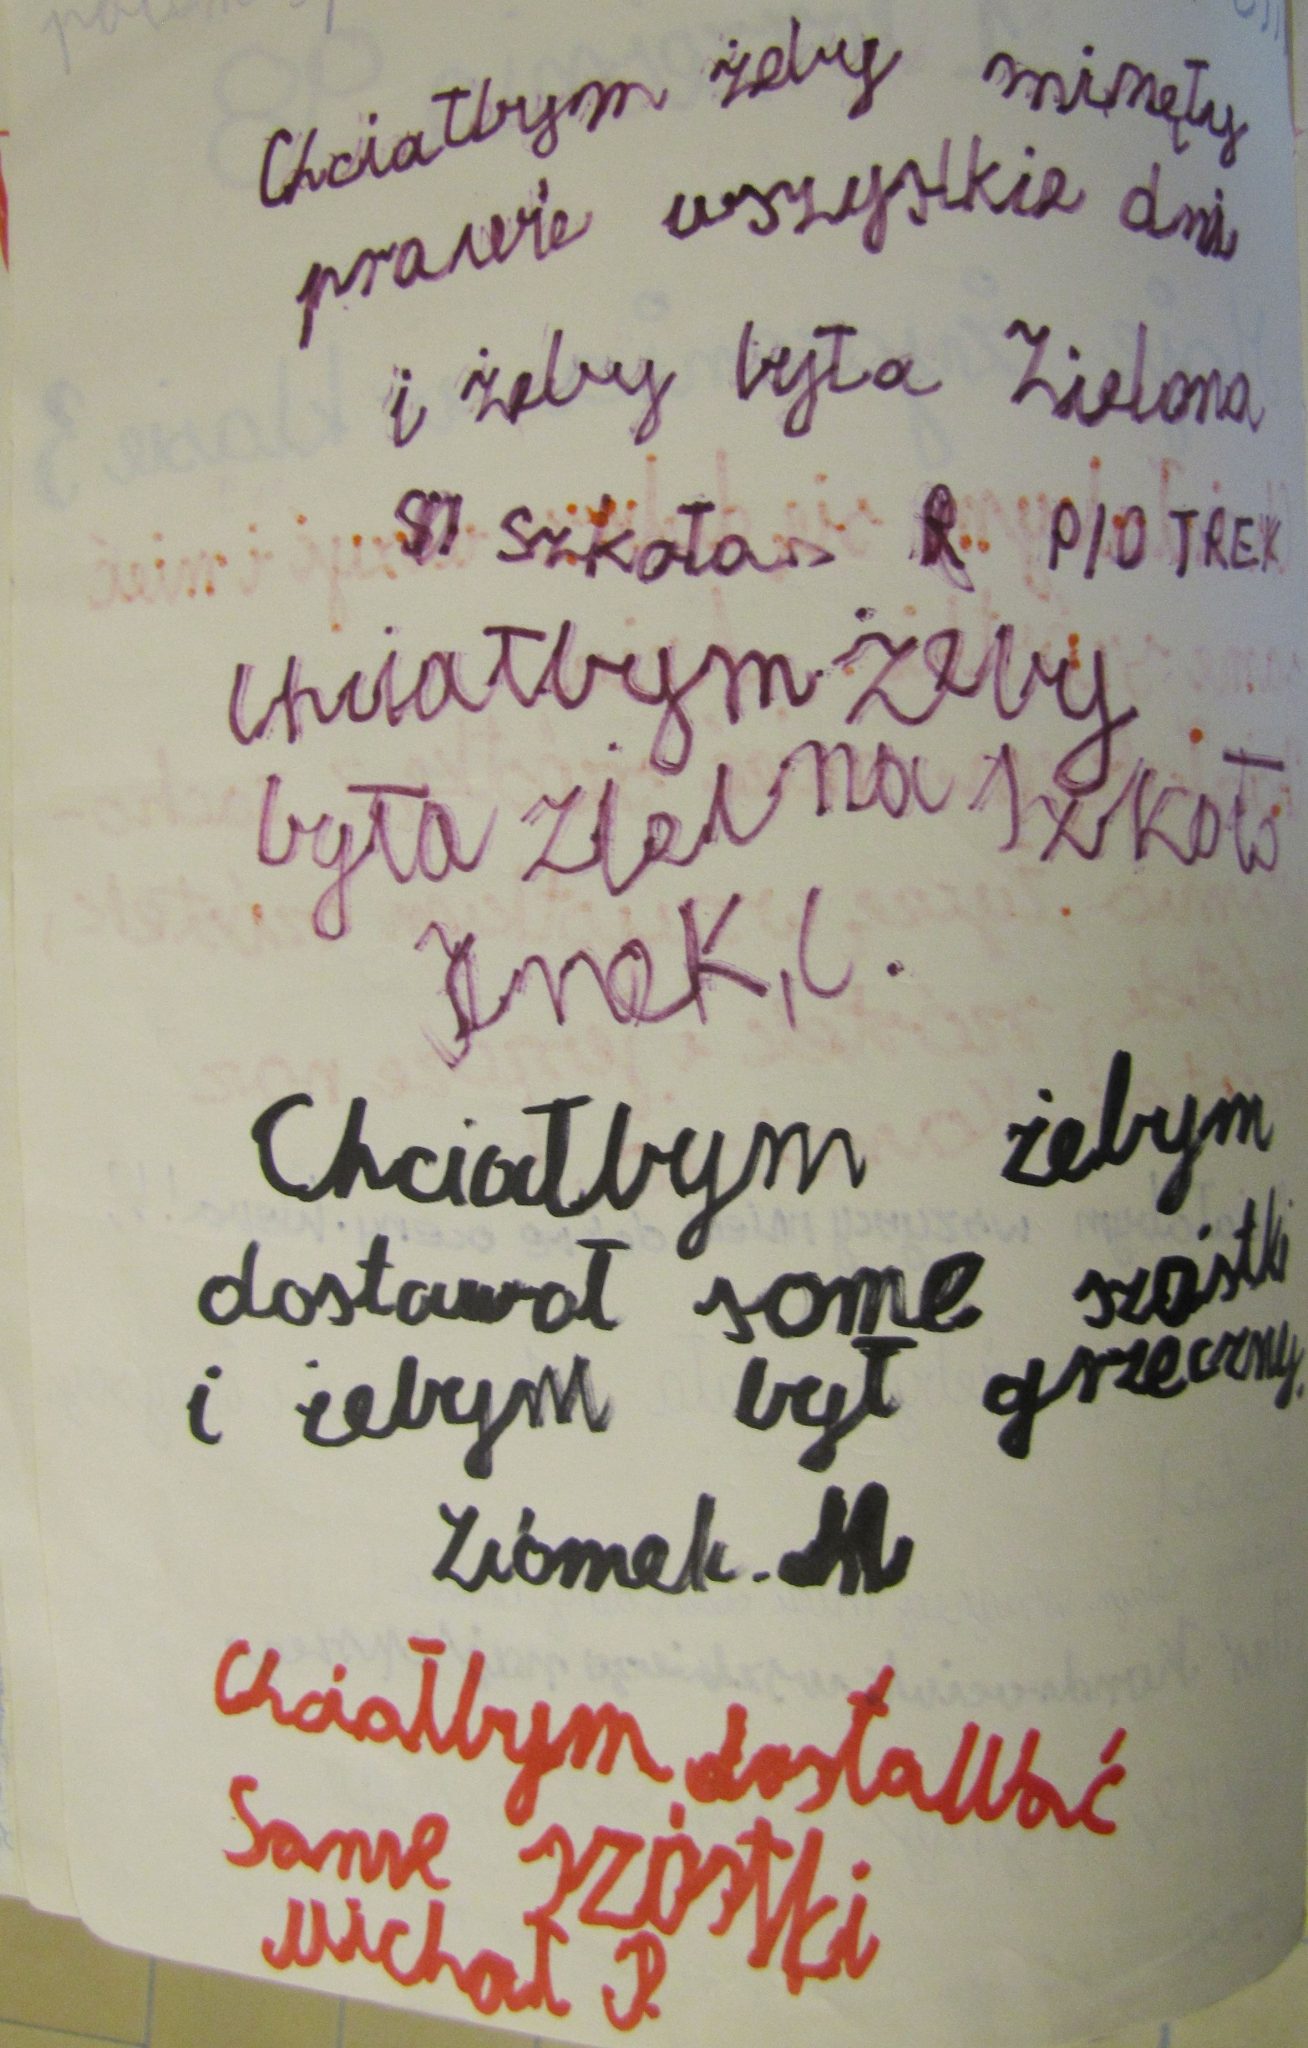 Chciałbym żeby minęły
prawie wszystkie dni
i żeby była Zielona
szkoła R PIOTREK
Chciałbym żeby
była Zielona szkoło
Chciałbym żebym
dostawał some szóstki
i żebym był grzeczny.
Ziómek. M
Chciałbym dostawać
Same szóstki
Michał P.